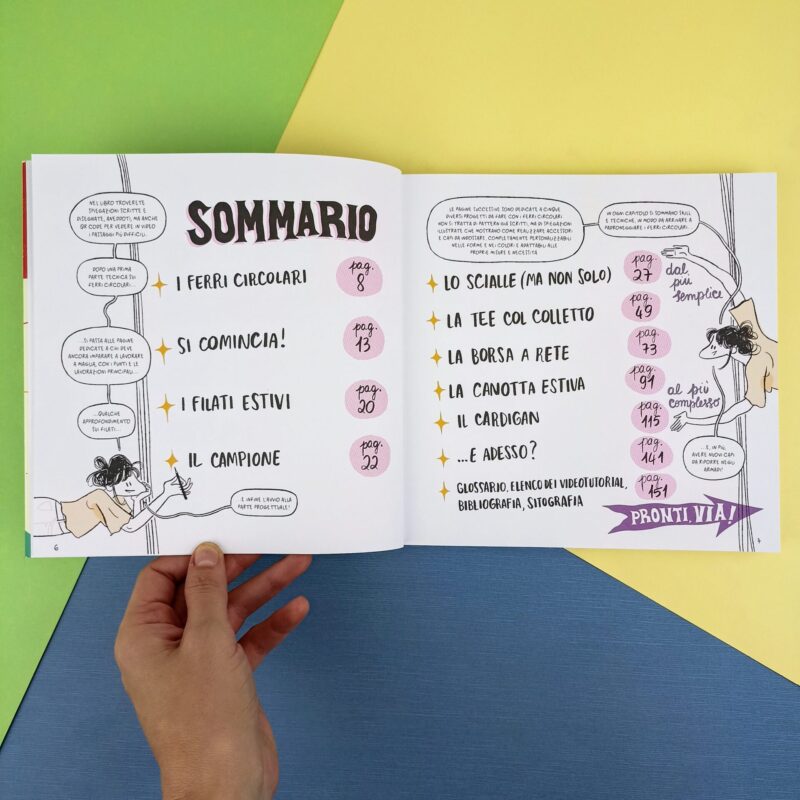 NEL LIBRO TROVERETE
SPIEGAZIONI SCRITTE E
DISEGNATE, ANEDDOTI, MA ANCHE
QR CODE PER VEDERE IN VIDEO
I PASSAGGI PIÙ DIFFICILI.
DOPO UNA PRIMA
PARTE TECNICA SUI
FERRI CIRCOLARI...
...SI PASSA ALLE PAGINE
DEDICATE A CHI DEVE
ANCORA IMPARARE A LAVORARE
A MAGLIA, CON I PUNTI E LE
LAVORAZIONI PRINCIPALI...
...QUALCHE
APPROFONDIMENTO
SUI FILATI...
E INFINE L'AVVIO ALLA
PARTE PROGETTUALE!
SOMMARIO
I FERRI CIRCOLARI pag. 8
SI COMINCIA! pag. 13
I FILATI ESTIVI pag. 20
IL CAMPIONE pag. 22
6
LE PAGINE SUCCESSIVE SONO DEDICATE A CINQUE
DIVERSI PROGETTI DA FARE CON I FERRI CIRCOLARI.
NON SI TRATTA DI PATTERN GIÀ SCRITTI, MA DI SPIEGAZIONI
ILLUSTRATE CHE MOSTRANO COME REALIZZARE ACCESSORI
E CAPI DA INDOSSARE, COMPLETAMENTE PERSONALIZZABILI
NELLE FORME E NEI COLORI E ADATTABILI ALLE
PROPRIE MISURE E NECESSITÀ
IN OGNI CAPITOLO SI SOMMANO SKILL
E TECNICHE, IN MODO DA ARRIVARE A
PADRONEGGIARE I FERRI CIRCOLARI.
LO SCIALLE (MA NON SOLO) pag. 27
LA TEE COL COLLETTO pag. 49
LA BORSA A RETE pag. 73
LA CANOTTA ESTIVA pag. 91
IL CARDIGAN pag. 115
...E ADESSO? pag. 141
GLOSSARIO, ELENCO DEI VIDEOTUTORIAL, pag. 151
BIBLIOGRAFIA, SITOGRAFIA
dal
più
semplice
al più
complesso
...E, IN PIÙ,
AVERE NUOVI CAPI
DA RIPORRE NEGLI
ARMADI!
PRONTI, VIA!
7